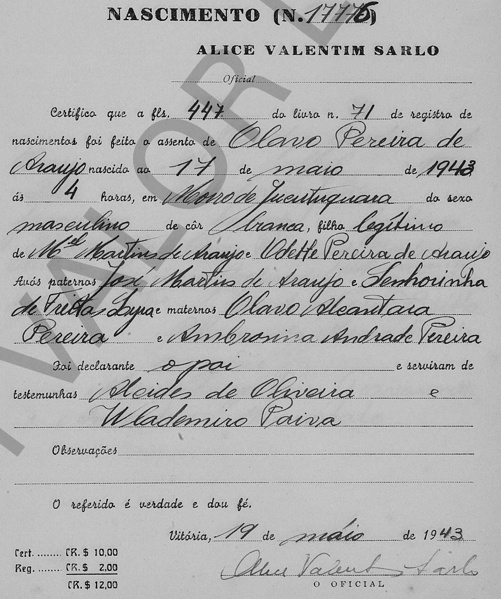 NASCIMENTO (N. 17776)
ALICE VALENTIM SARLO
Oficial
Certifico que a fls. 447 do livro n. 71 de registro de
nascimentos foi feito o assento de Olavo Pereira de
Araujo nascido ao 17 de maio de 1943
ás 4 horas, em Morro de Jucutuquara do sexo
masculino de côr branca, filho legítimo
de Mel Martins de Araujo e Odette Pereira de Araujo
Avós paternos José Martins de Araujo e Senhorinha
de Freitas Lyra e maternos Olavo Alcantara
Pereira e Ambrosina Andrade Pereira
Foi declarante o pai e serviram de
testemunhas Alcides de Oliveira e
Wlademiro Paiva
Observações
O referido é verdade e dou fé.
Vitória, 19 de máio de 1943
Cert. ........ CR. $ 10,00
Reg. ........ CR. $ 2,00
CR. $ 12,00
Alice Valentim Sarlo
O OFICIAL
VALOR